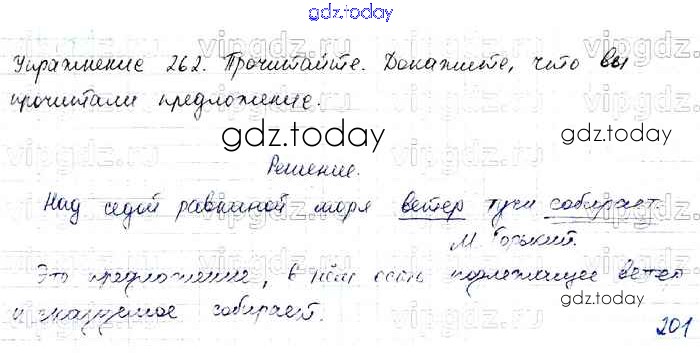 gdz.today
Упражнение 262. Прочитайте. Докажите, что вы
прочитали предложение.
gdz.today gdz.today
Решение.
Над седой равниной моря ветер тучи собирает.
М. Горький.
Это предложение, в нём есть подлежащее ветер
и сказуемое собирает.
gdz.today
201